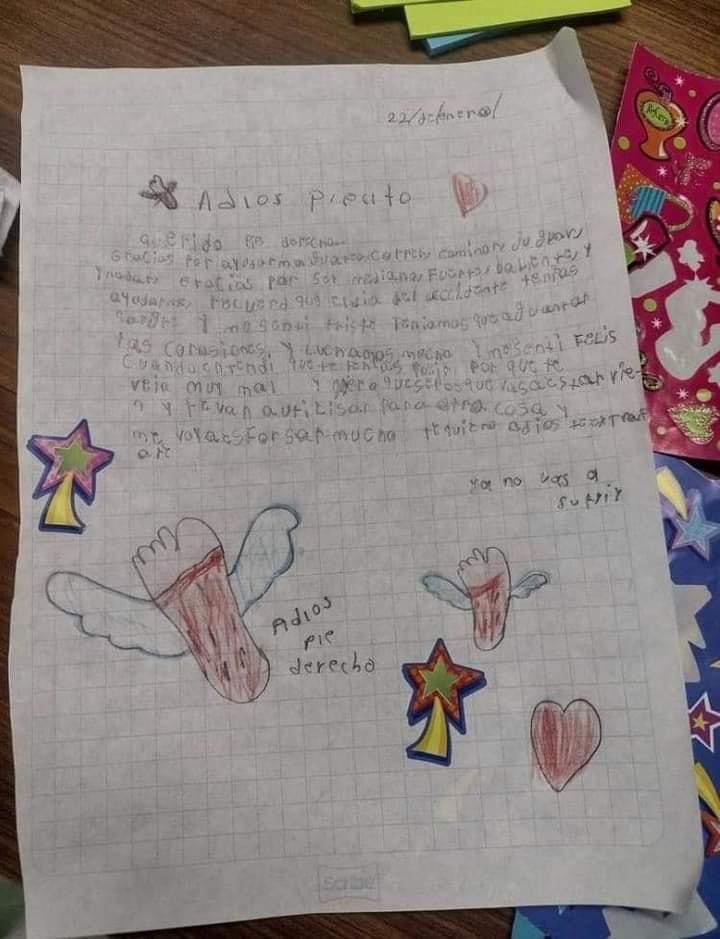 22/de enero/
Adios piecito
querido pie derecho
Gracias por ayudarme a correr, caminar, jugar,
y nadar, gracias por ser mediano, fuerte, baliente, y
ayudarme, recuerdo que el dia del accidente tenias
sangre y me senti triste teniamos que aguantar
las corasiones, y luchamos mucho y me senti Felis
cuando
veia muy mal y pero que se que vas a estar vie-
n y te van a utilisar para otra cosa y
me voy a esforsar mucho te quiero adios te extrañ
are
ya no vas a
sufrir
Adios
pie
derecho
Scribe